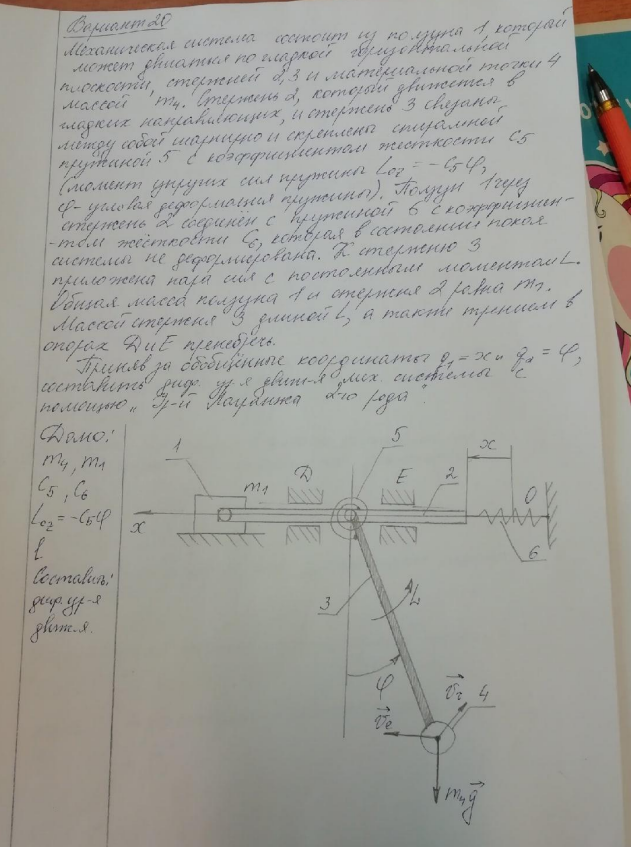 Вариант 20
Механическая система состоит из ползуна 1, который
может двигаться по гладкой горизонтальной
плоскости, стержней 2, 3 и материальной точки 4
массой m4. Стержень 2, который движется в
гладких направляющих, и стержень 3 связаны
между собой шарнирно и скреплены спиральной
пружиной 5 с коэффициентом жесткости C5
(момент упругих сил пружины Loz = -C5φ,
φ - угловая деформация пружины). Ползун 1 через
стержень 2 соединён с пружиной 6 с коэффициен-
-том жёсткости C6, которая в состоянии покоя
системы не деформирована. К стержню 3
приложена пара сил с постоянным моментом L.
Общая масса ползуна 1 и стержня 2 равна m1.
Массой стержня 3 длиной l, а также трением в
опорах D и E пренебречь.
Приняв за обобщённые координаты q1 = x и q2 = φ,
составить диф. ур-я движ-я мех. системы с
помощью "Ур-й Лагранжа 2-го рода".
Дано:
m4, m1
C5, C6
Loz = -C5φ
l
Составить:
диф. ур-я
движ-я.
1
m1
D
5
E
2
x
O
x
6
3
L
φ
vr
4
ve
m4g